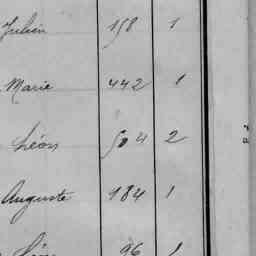 Julien 158 1
Marie 442 1
Léon 504 2
Auguste 184 1
Léon 96 1